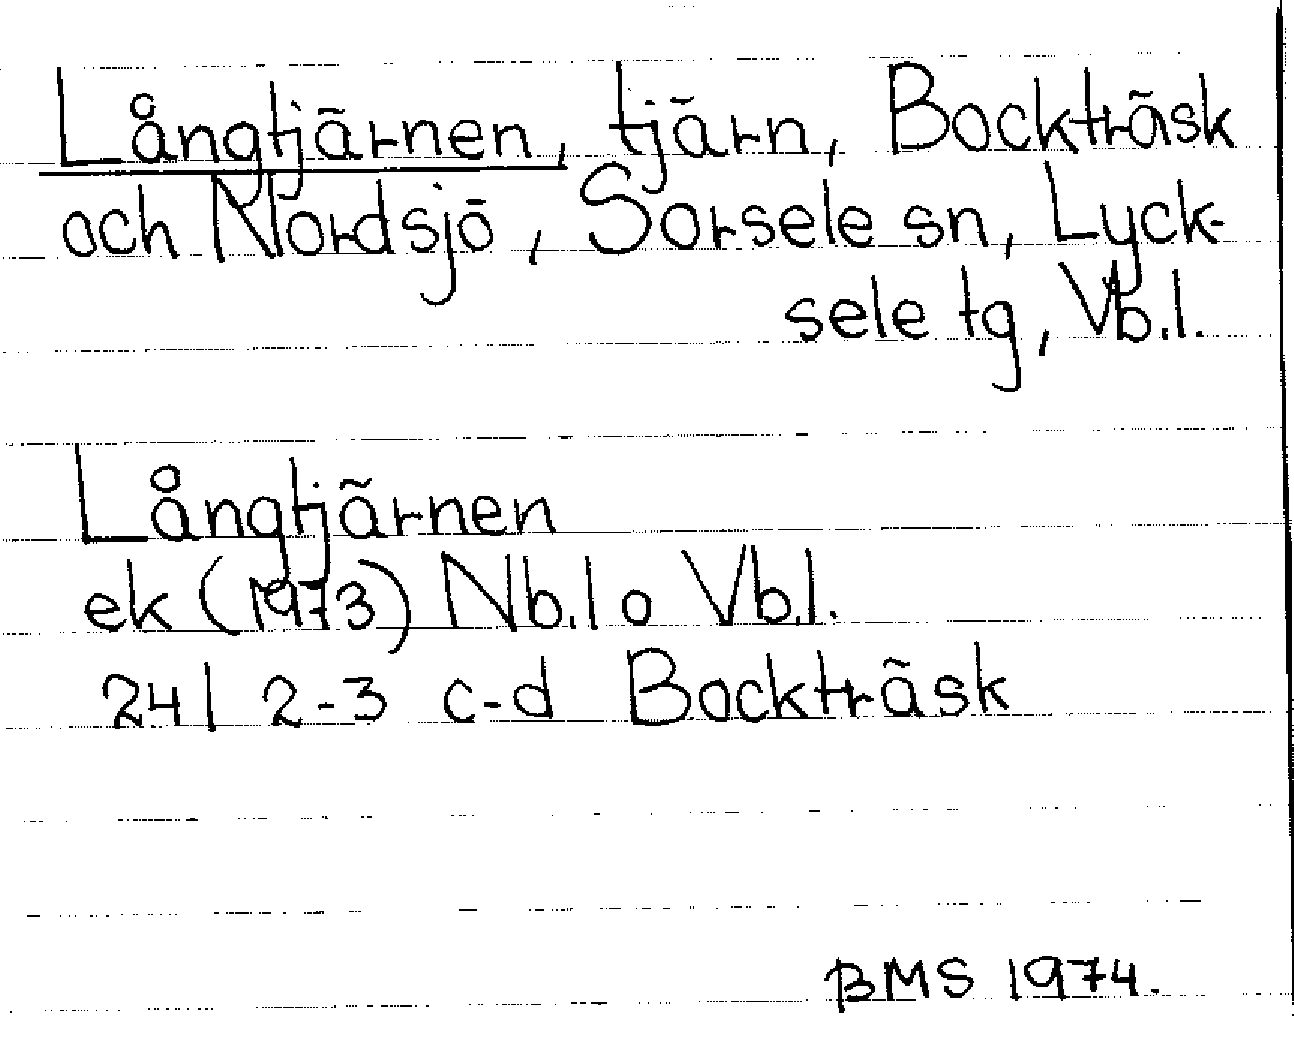 Långtjärnen, tjärn, Bockträsk
och Nordsjö, Sorsele sn, Lyck-
sele tg, Vb.l.
Långtjärnen
ek (1973) Nb.l o Vb.l.
24I 2-3 c-d Bockträsk
BMS 1974.